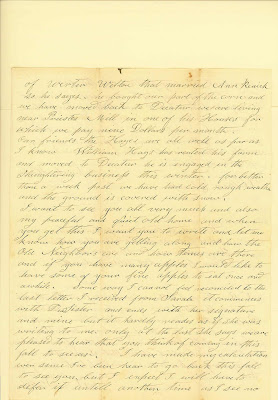 of Wertin Weston that married Ann Rewick
so he says. he bought our part of the corn and
we have moved back to Decatur we are living
near Priests Mill in one of his Houses for
which we pay nine Dollars per month.
Our friends the Hays are all well as far as
I know. Christian Hays has rented his farm
and moved to Decatur he is engaged in the
business this winter. for better
than a week past we have had cold, rough weather
and the ground is covered with snow.
I want to see you all very much and also
my peaceful and quiet old home, and when
you get this I want you to write and let me
know how you are getting along and how the
Old Neighbors are and have times are there
and if you have any apples I would like to
have some of your fine apples to eat once and
awhile. Some way I cannot feel reconciled to the
last letter I received from Sarah it commences
with Dr Sister and ends with her signature
and mine but it hardly reads as if she was
writing to me. only at the last she says were
pleased to hear that you think of coming in this
fall to see us. I have made my calculation
ever since I've been here to go back this fall
to see you, but I expect I will have to
defer it untill another time as I see no